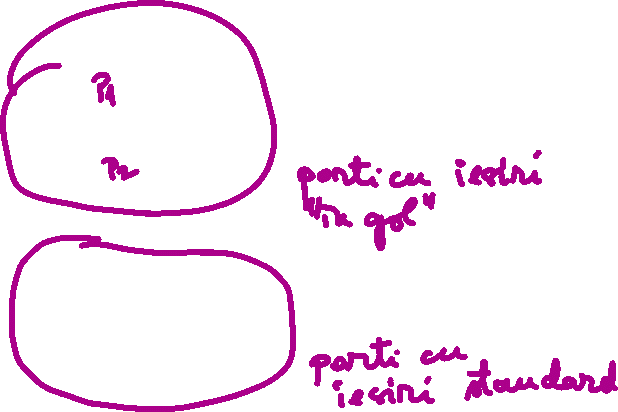 P1
P2
porti cu iesiri
"in gol"
porti cu
iesiri standard